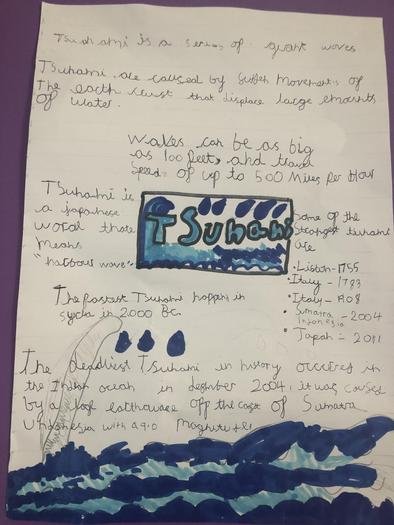 Tsunami is a series of giant waves
Tsunami are caused by sudden movements of
the earth crust that displace large amounts
of water.
waves can be as big
as 100 feets and travel
speeds of up to 500 Miles per Hour
Tsunami is
a japanese
word thats
means
"harbour wave"
TSunami
Some of the
strongest tsunami
are
• Lisbon - 1755
• Italy - 1783
• Italy - 1908
• Sumatra - 2004
Indonesia
• Japan - 2011
The Fastest Tsunami happen in
syria in 2000 Bc.
The deadliest Tsunami in history occured in
the Indian ocean in desmber 2004, it was caused
by a huge earthquake off the cost of Sumatra
Indonesia with a 9.0